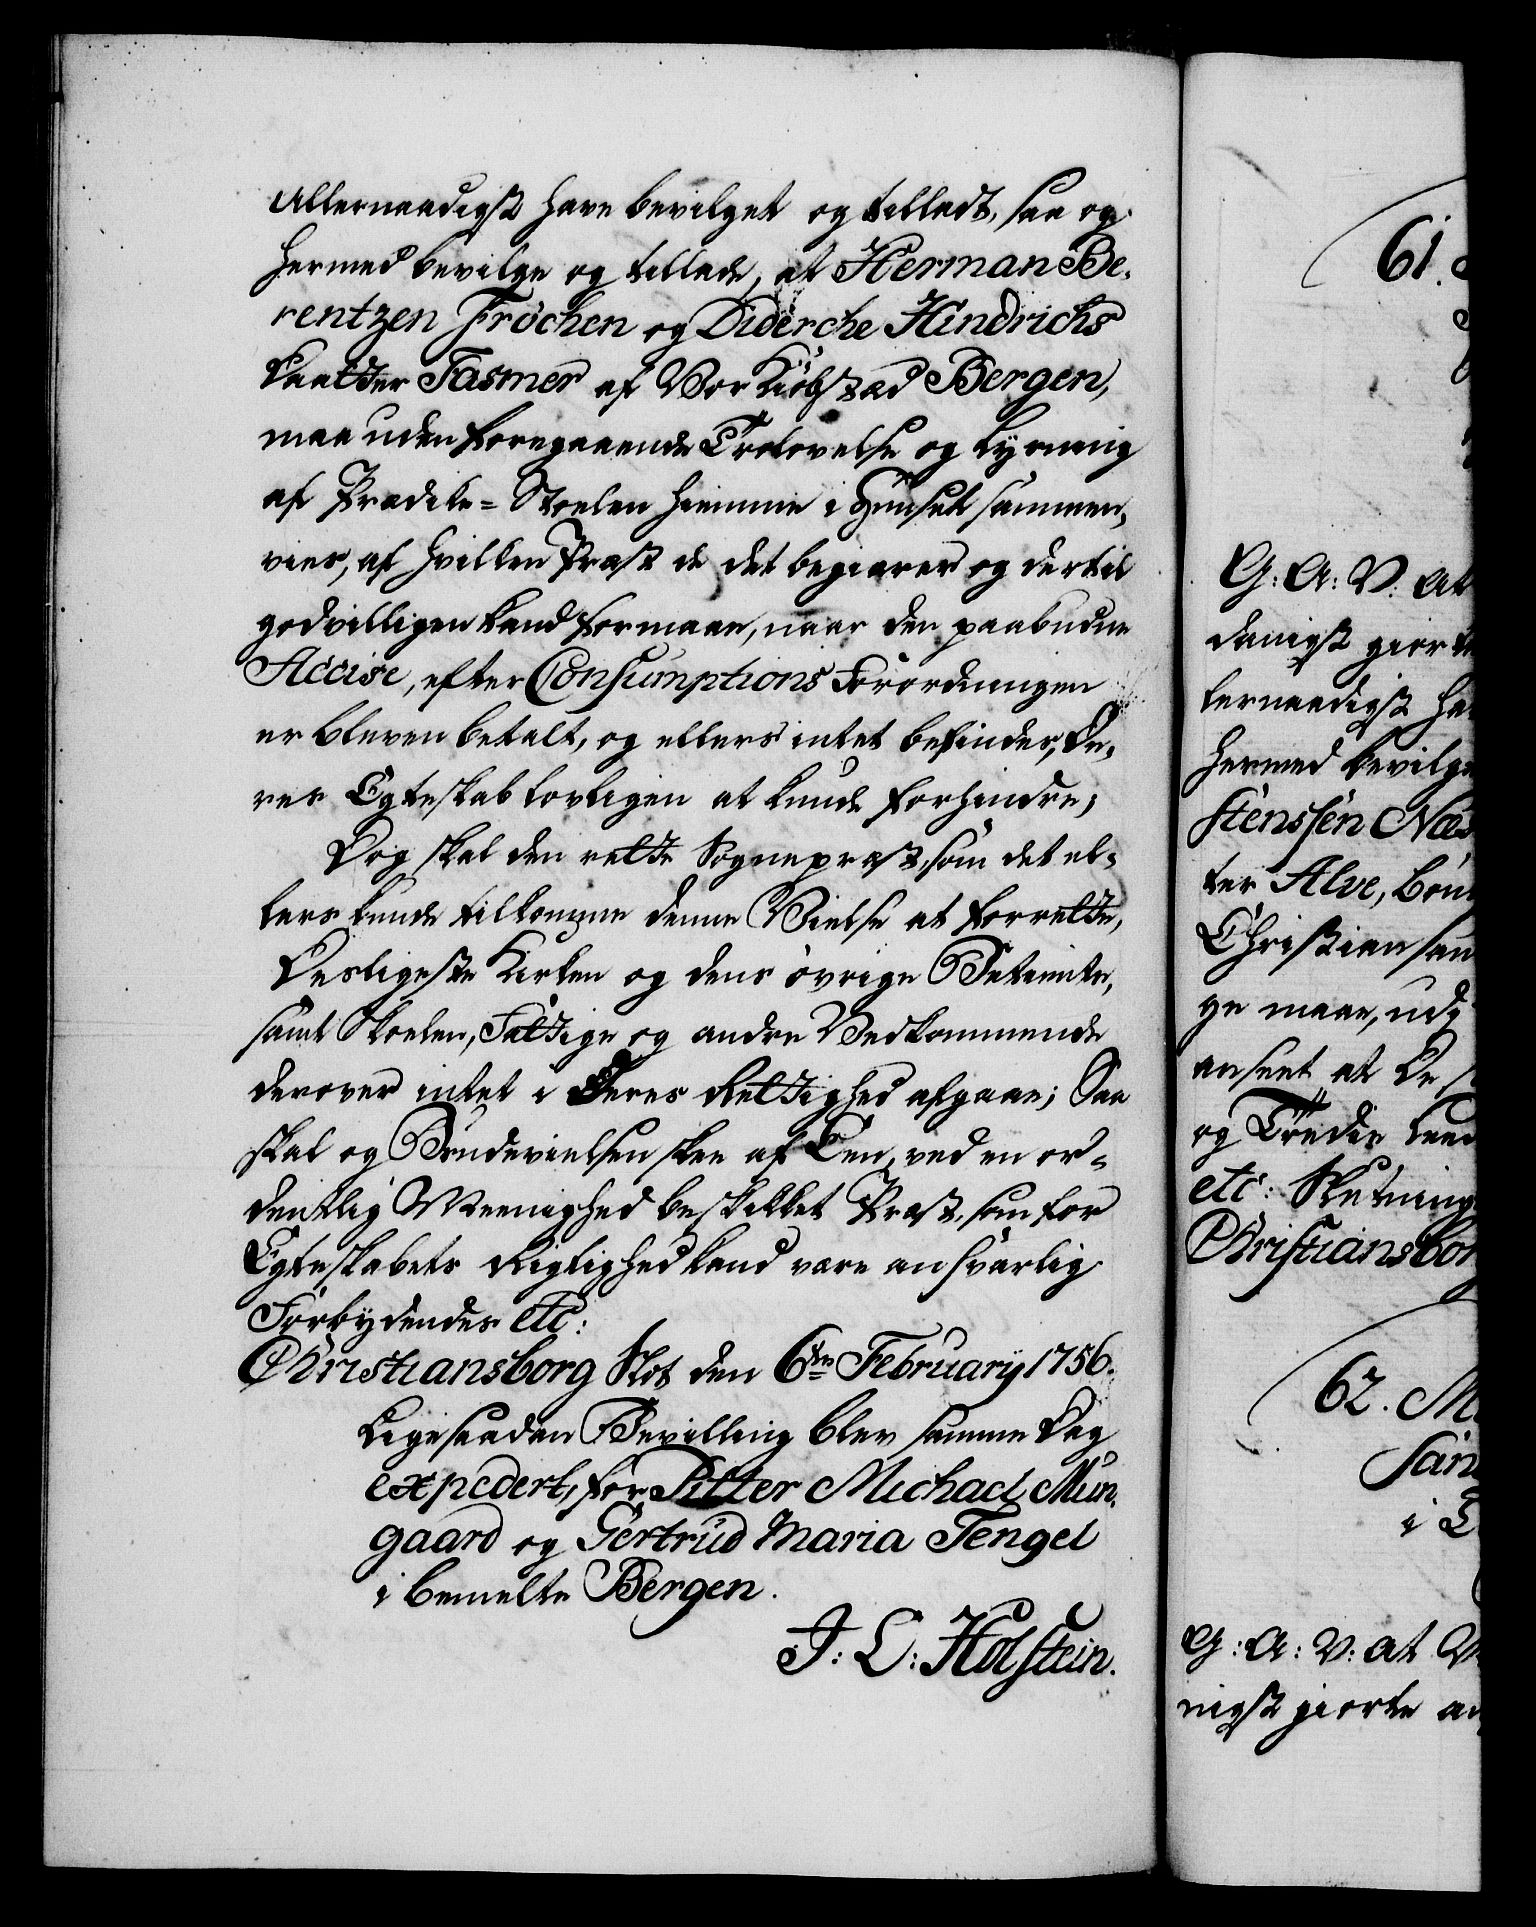 Allernaadigst have bevilget og tilladt, saa og
hermed bevilge og tillade, at Herman Be-
rentzen Fröchen og Diderche Hindrichs
Daatter Fasmer af Vor Kiöbstæd Bergen,
maa uden foregaaende Trolovelse og Lysning
af Prædike-Stoelen hiemme i Huuset sammen-
vies, af hvilken Præst de det begiærer og dertil
godvilligen kand formaae, naar den paabudne
Accise, efter Consumptions Forordningen
er bleven betalt, og ellers intet befindes, De-
res Egteskab lovligen at kunde forhindre;
Dog skal den rette Sognepræst, som det el-
lers kunde tilkomme denne Vielse at forrette,
Desligeste Kirken og dens övrige Betiente,
samt Skoelen, Fattige og andre Vedkommende
derover intet i Deres Rettighed afgaae; Saa
skal og Brudevielsen skee af Een, ved en or-
dentlig Meenighed beskikket Præst, som for
Egteskabets Rigtighed kand være ansvarlig
Forbydendes etc:
Christiansborg Slot den 6te February 1756.
Ligesaadan Bevilling blev samme Dag
expedert, for Pitter Michael Mun-
gaard og Gertrud Maria Tengel
i bemelte Bergen.
J: L: Holstein.
61.
G: A: V: At
danigst giort
lernaadigst ha
hermed bevilge
stenssen Næs
ter Alve,
Christiansan
ge maae, und
anseet at De
og Tredie Leed
etc: Slutning
Christiansbor
62. M
San
i
G: A: V: At V
nigst giorte an